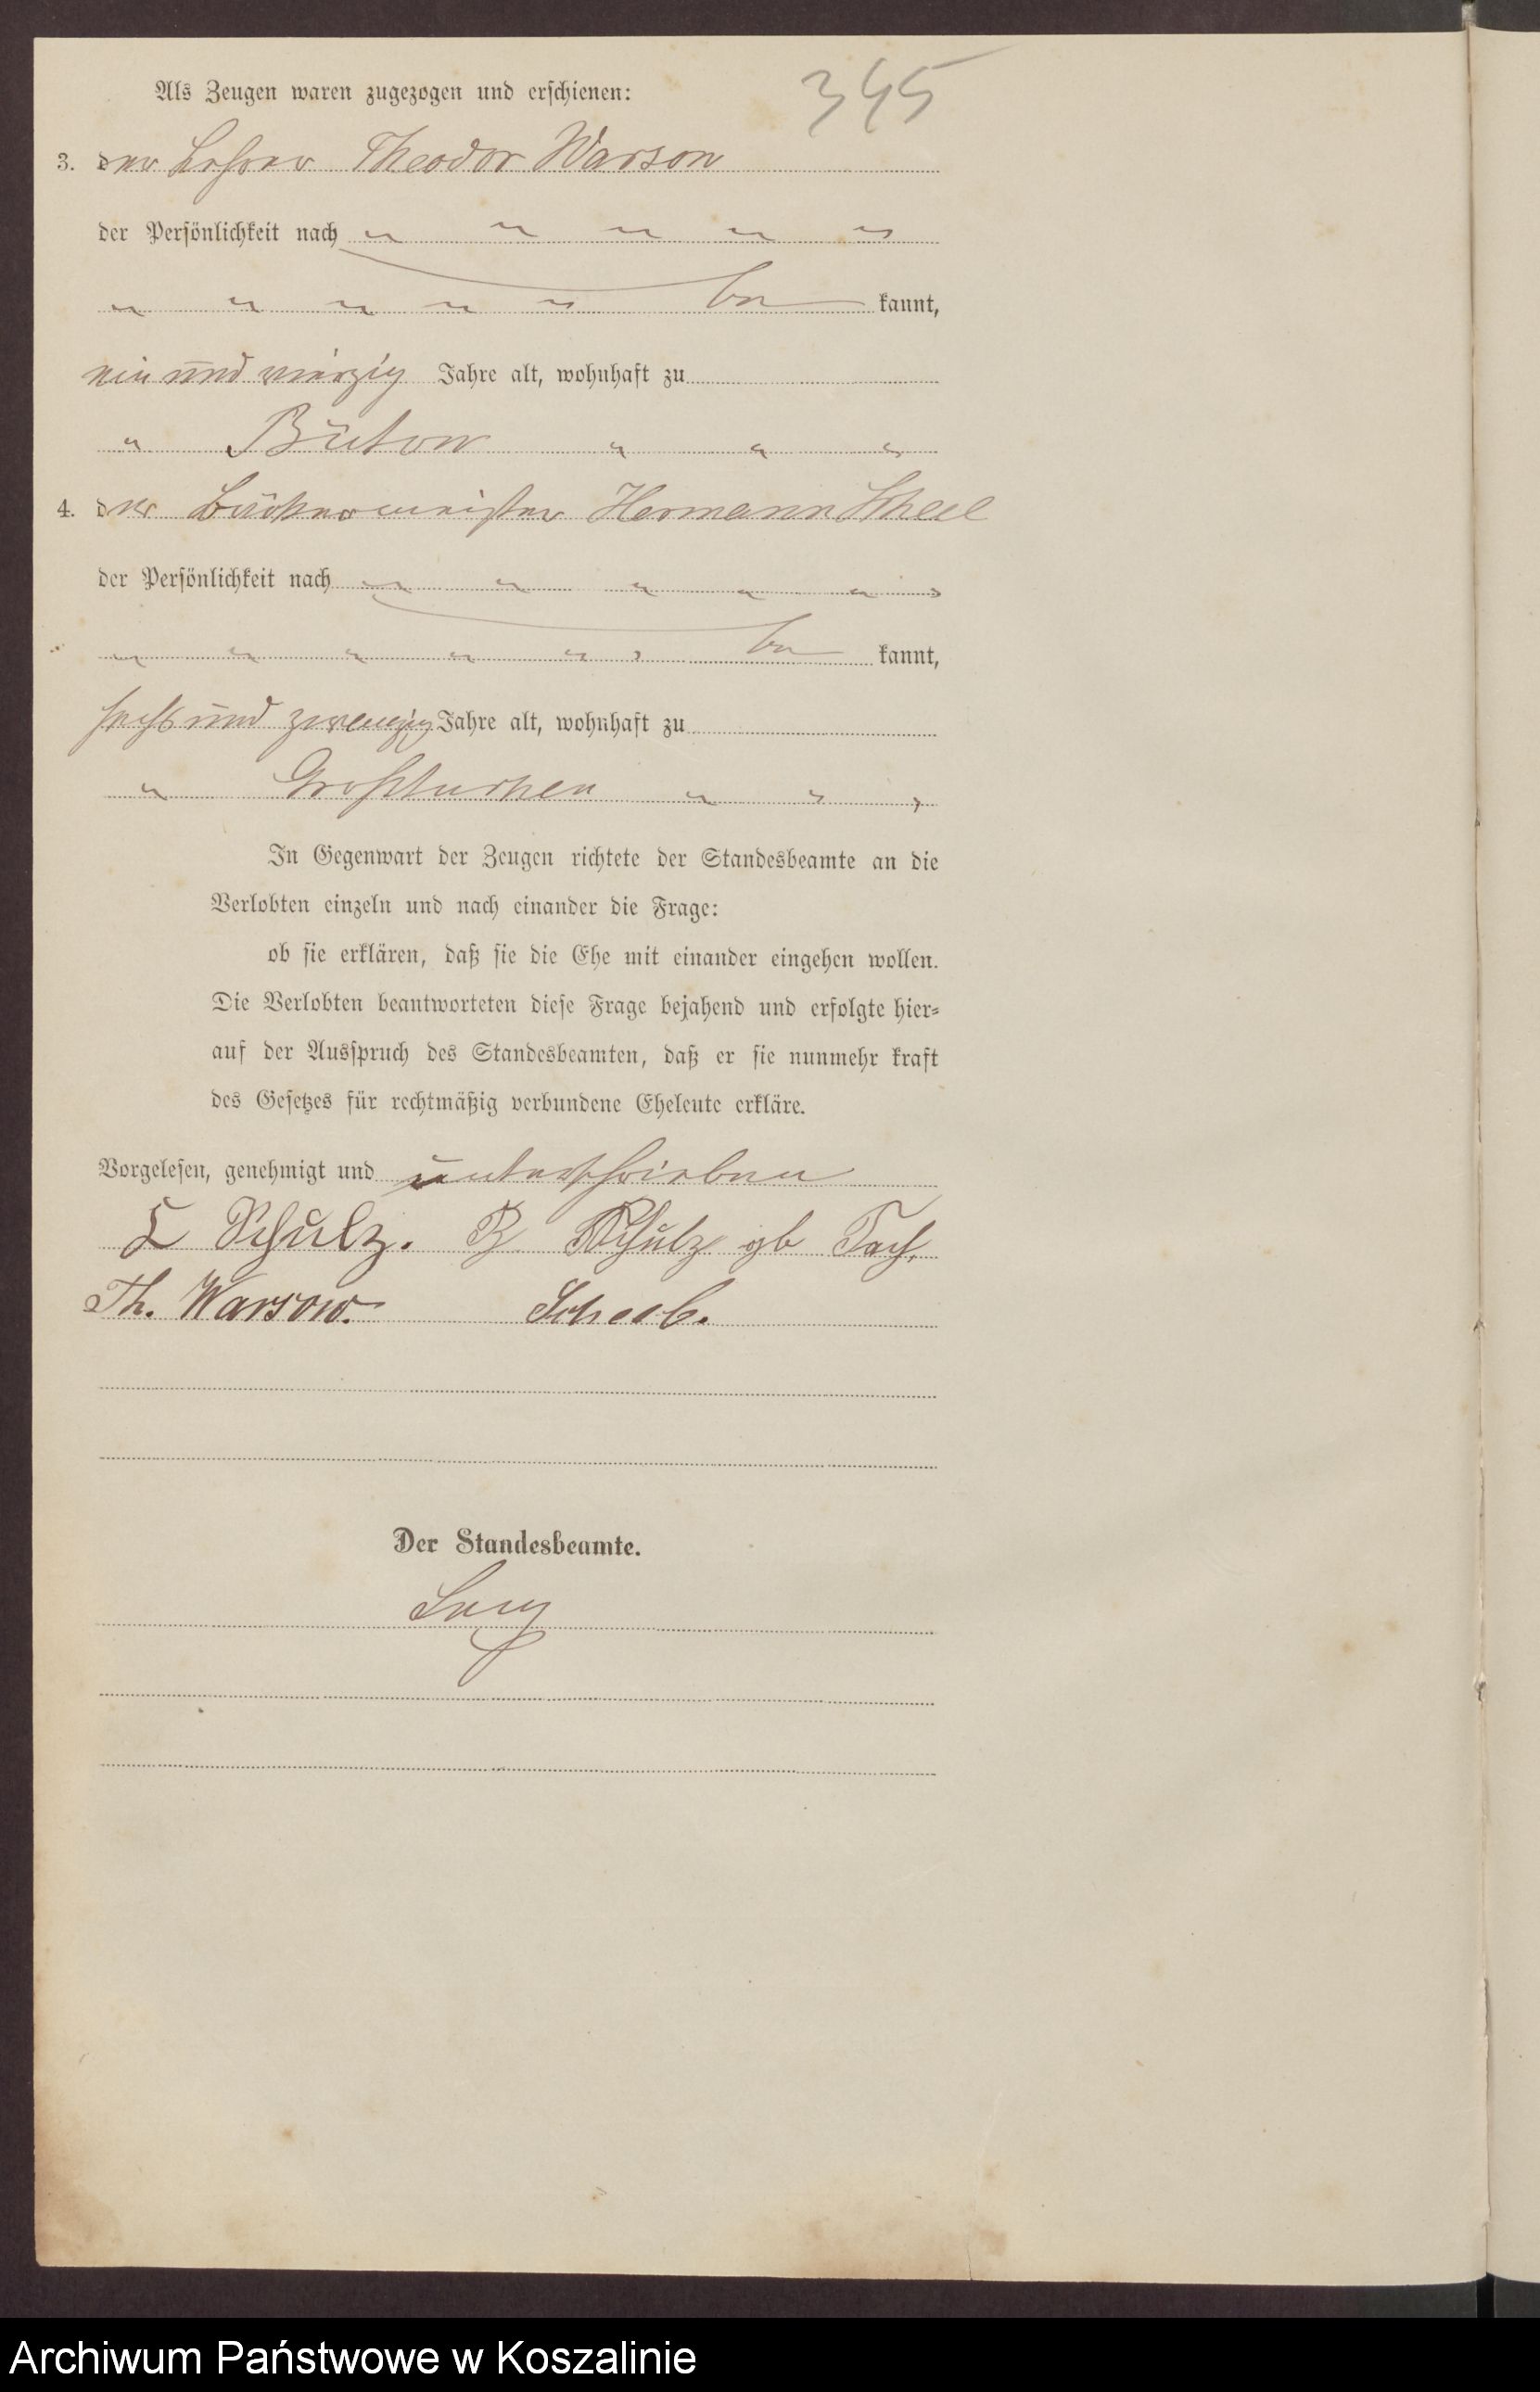 345
Als Zeugen waren zugezogen und erschienen:
3. der Lehrer Theodor Warsow
der Persönlichkeit nach
be kannt,
ein und vierzig Jahre alt, wohnhaft zu
Bütow
4. der Bäckermeister Hermann Scheel
der Persönlichkeit nach
be kannt,
sechs und zwanzig Jahre alt, wohnhaft zu
Großtuchen
In Gegenwart der Zeugen richtete der Standesbeamte an die
Verlobten einzeln und nach einander die Frage:
ob sie erklären, daß sie die Ehe mit einander eingehen wollen.
Die Verlobten beantworteten diese Frage bejahend und erfolgte hier-
auf der Ausspruch des Standesbeamten, daß er sie nunmehr kraft
des Gesetzes für rechtmäßig verbundene Eheleute erkläre.
Vorgelesen, genehmigt und unterschrieben
Schulz. B Schulz gb
Th. Warsow. Scheel.
Der Standesbeamte.
Archiwum Państwowe w Koszalinie